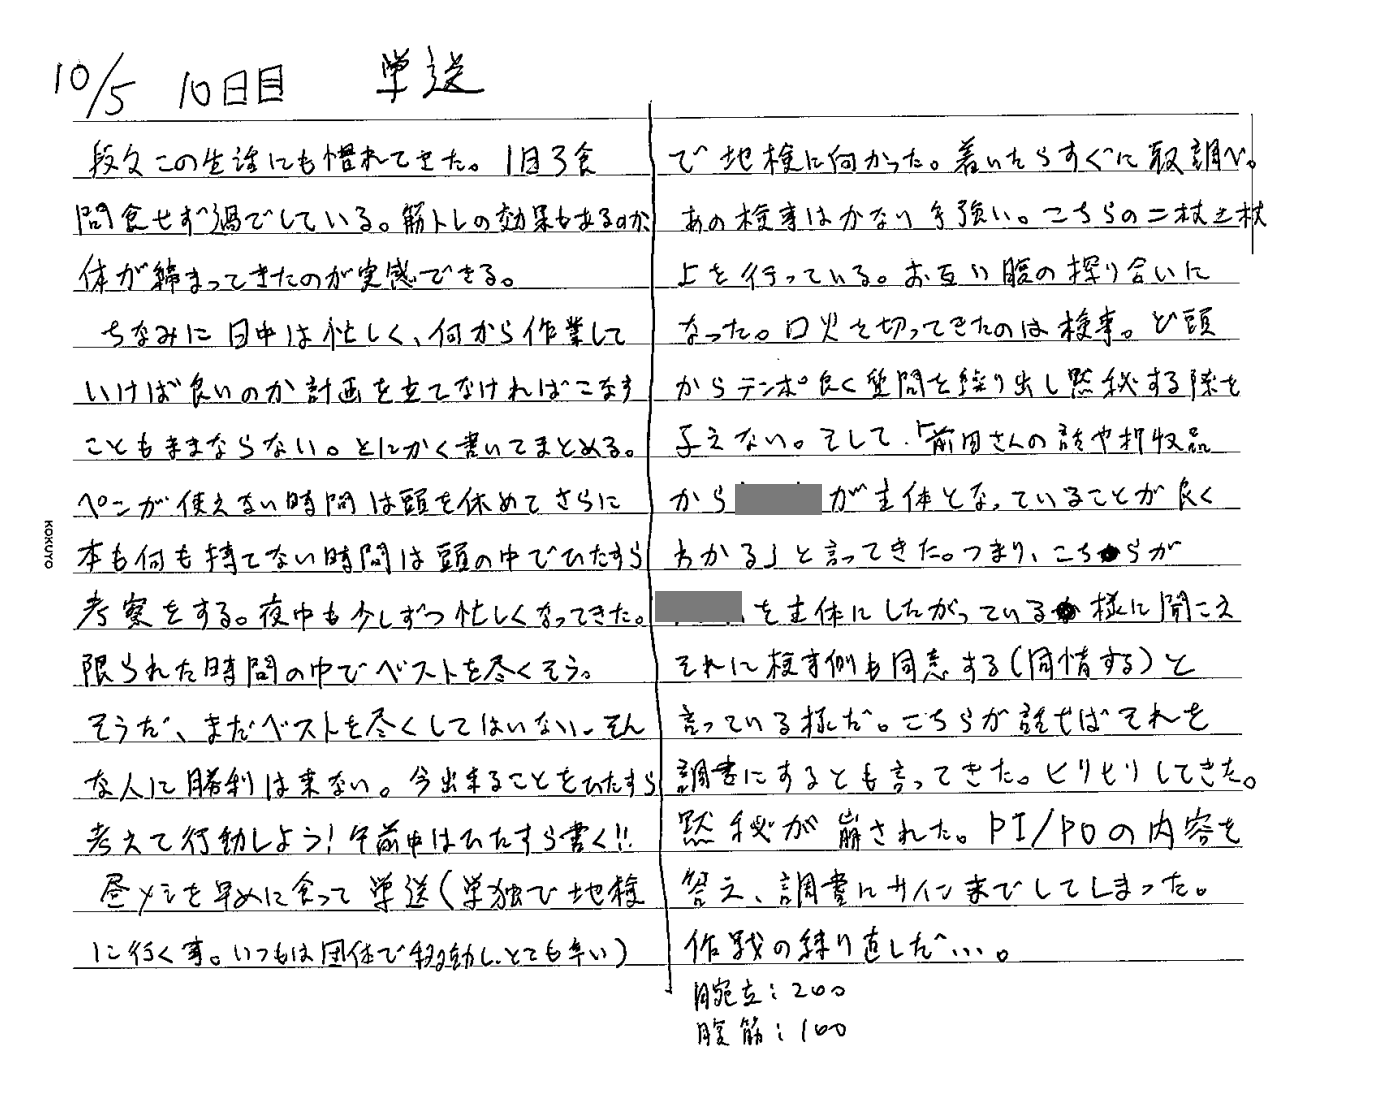 10/5 10日目 単送
段々この生活にも慣れてきた。1日3食
間食せず過ごしている。筋トレの効果もあるのか
体が締まってきたのが実感できる。
ちなみに日中は忙しく、何から作業して
いけば良いのか計画を立てなければこなす
こともままならない。とにかく書いてまとめる。
ペンが使えない時間は頭を休めてさらに
本も何も持てない時間は頭の中でひたすら
考察をする。夜中も少しずつ忙しくなってきた。
限られた時間の中でベストを尽くそう。
そうだ、まだベストを尽くしてはいない。そん
な人に勝利は来ない。今出来ることをひたすら
考えて行動しよう!午前中はひたすら書く!!
昼メシを早めに食って単送(単独で地検
に行く事。いつもは団体で移動し、とても辛い)
で地検に向かった。着いたらすぐに取調べ。
あの検事はかなり手強い。こちらの二枚も三枚
上を行っている。お互い腹の探り合いに
なった。口火を切ってきたのは検事。ど頭
からテンポ良く質問を繰り出し黙秘する隙を
与えない。そして、「前田さんの話や押収品
から が主体となっていることが良く
わかる」と言ってきた。つまり、こちらが
を主体にしたがっている様に聞こえ
それに検事側も同意する(同情する)と
言っている様だ。こちらが話せばそれを
調書にするとも言ってきた。ヒリヒリしてきた。
黙秘が崩された。PI/POの内容を
答え、調書にサインまでしてしまった。
作戦の練り直しだ…。
腕立:200
腹筋:100
KOKUYO